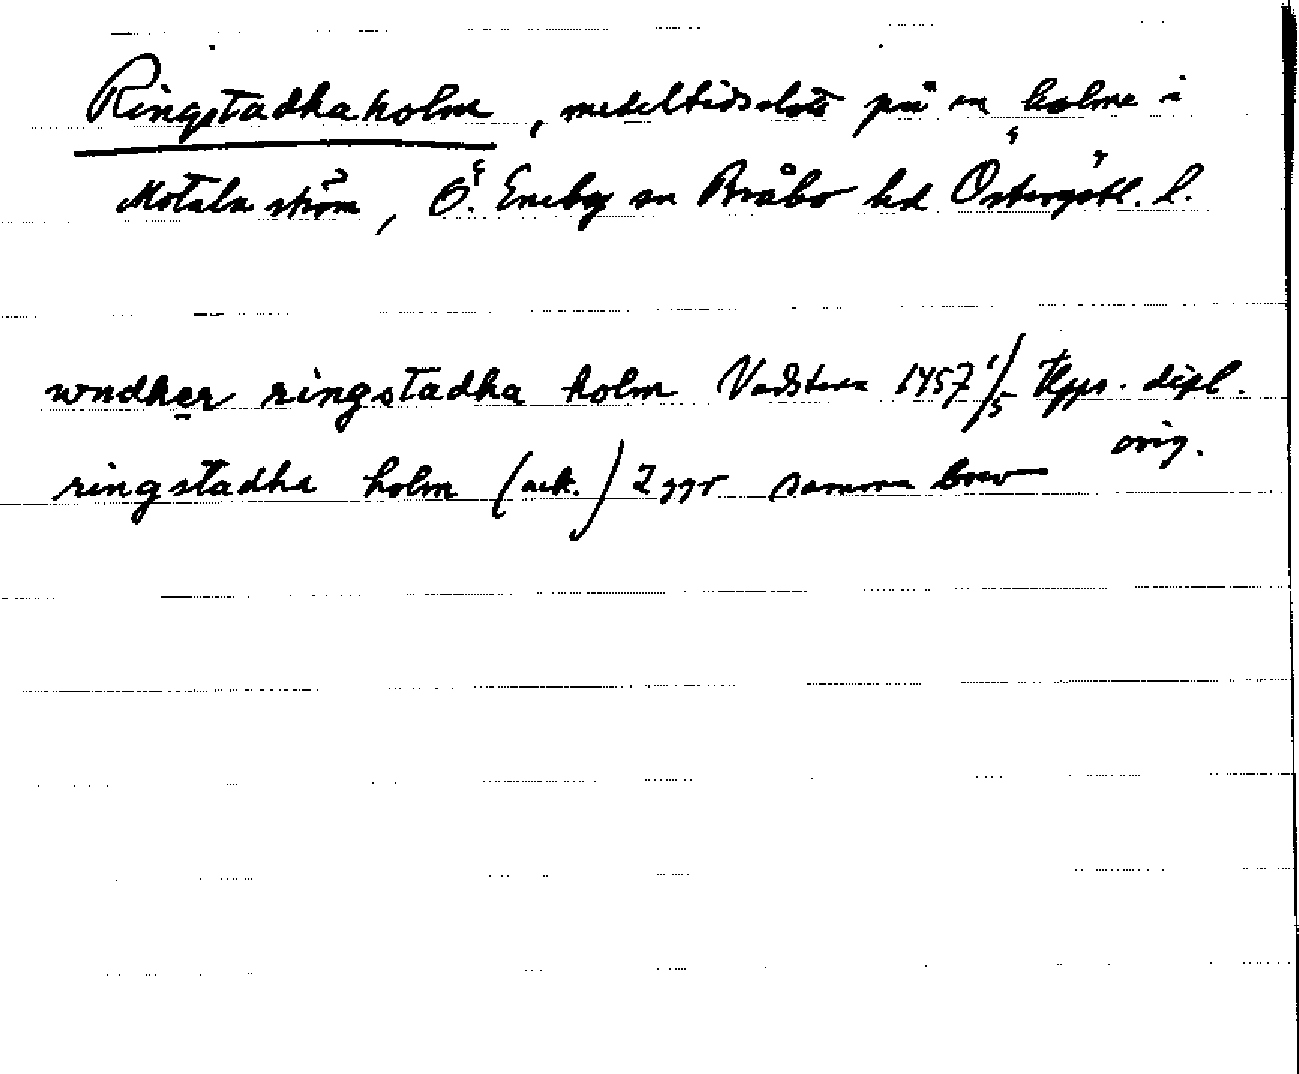 Ringstadhaholm, medeltidsslott på en holme i
Motala ström, Ö. Eneby sn Bråbo hd Östergötl. l.
wndher ringstadha holm Vadstena 1457 1/5 Upps. dipl.
orig.
ringstadha holm (ack.) 2 ggr samma brev